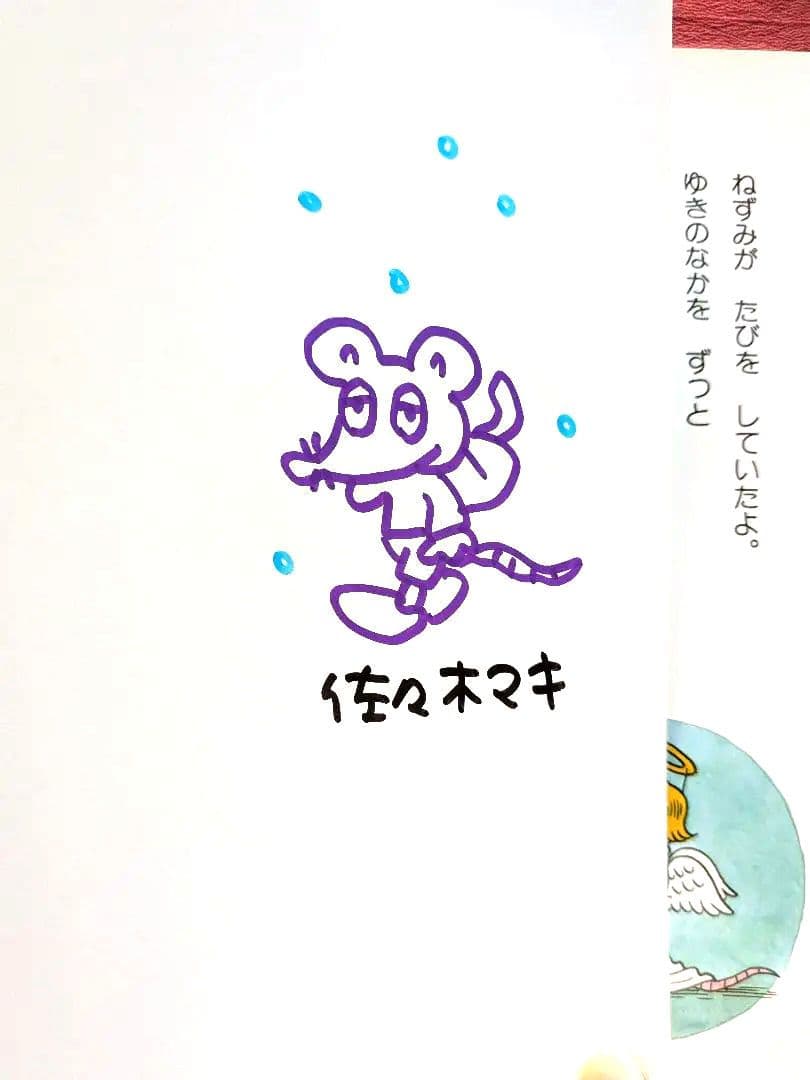 ねずみが　たびを　していたよ。
ゆきのなかを　ずっと
佐々木マキ